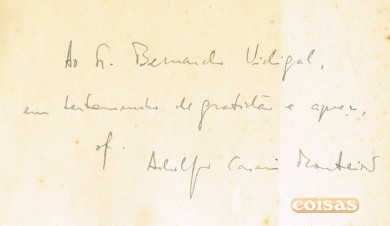 Ao Sr. Bernardo Vidigal,
em testemunho de gratidão e apreço,
of.
Adolfo Casais Monteiro
coisas